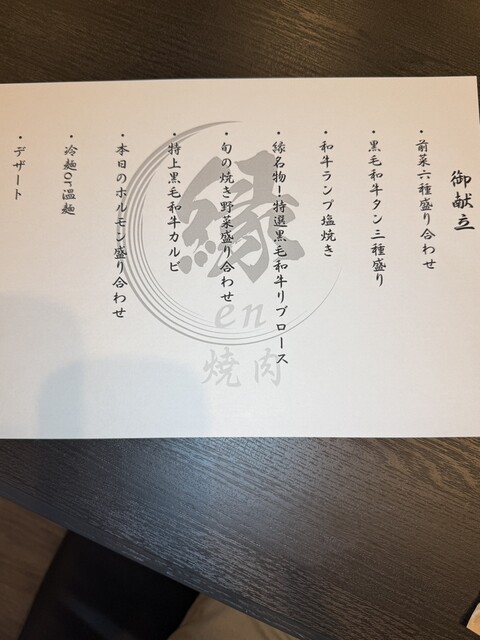 御献立
・前菜六種盛り合わせ
・黒毛和牛タン三種盛り
・和牛ランプ塩焼き
・縁名物！特選黒毛和牛リブロース
・旬の焼き野菜盛り合わせ
・特上黒毛和牛カルビ
・本日のホルモン盛り合わせ
・冷麺or温麺
・デザート
縁
en
焼肉